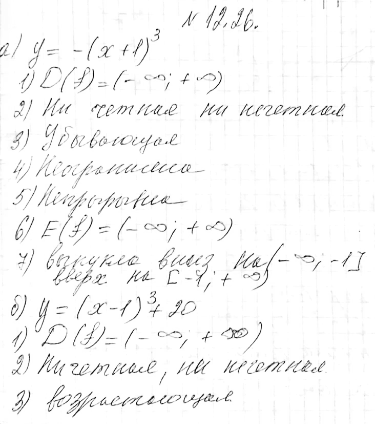 № 12.26.
а) y = -(x+1)³
1) D(f) = (-∞; +∞)
2) Ни четная ни нечетная
3) Убывающая
4) Неограничена
5) Непрерывна
6) E(f) = (-∞; +∞)
7) выпукла вниз на (-∞; -1]
вверх на [-1; +∞)
б) y = (x-1)³ + 20
1) D(f) = (-∞; +∞)
2) Ни четная, ни нечетная
3) возрастающая